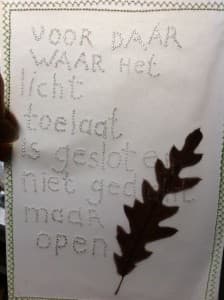 VOOR DAÁR
WAAR Het
licht
toelaat
is gesloten
niet
maar
open